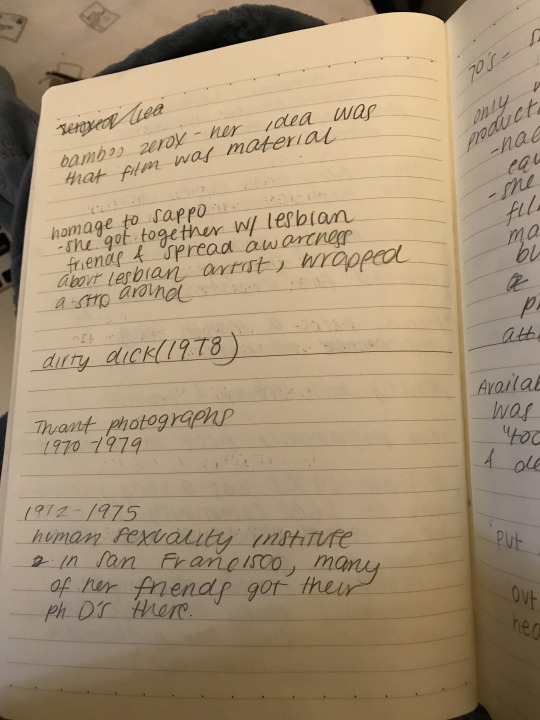 bamboo zerox - her idea was
that film was material
homage to sappo
- she got together w/ lesbian
friends & spread awareness
about lesbian artist, wrapped
a strip around
dirty dick (1978)
photographs
1970 - 1979
1972 - 1975
human sexuality institute
in San Francisco, many
of her friends got their
ph. D's there.
70's -
only
product
- she
Availab
was
"too
& de
put
out